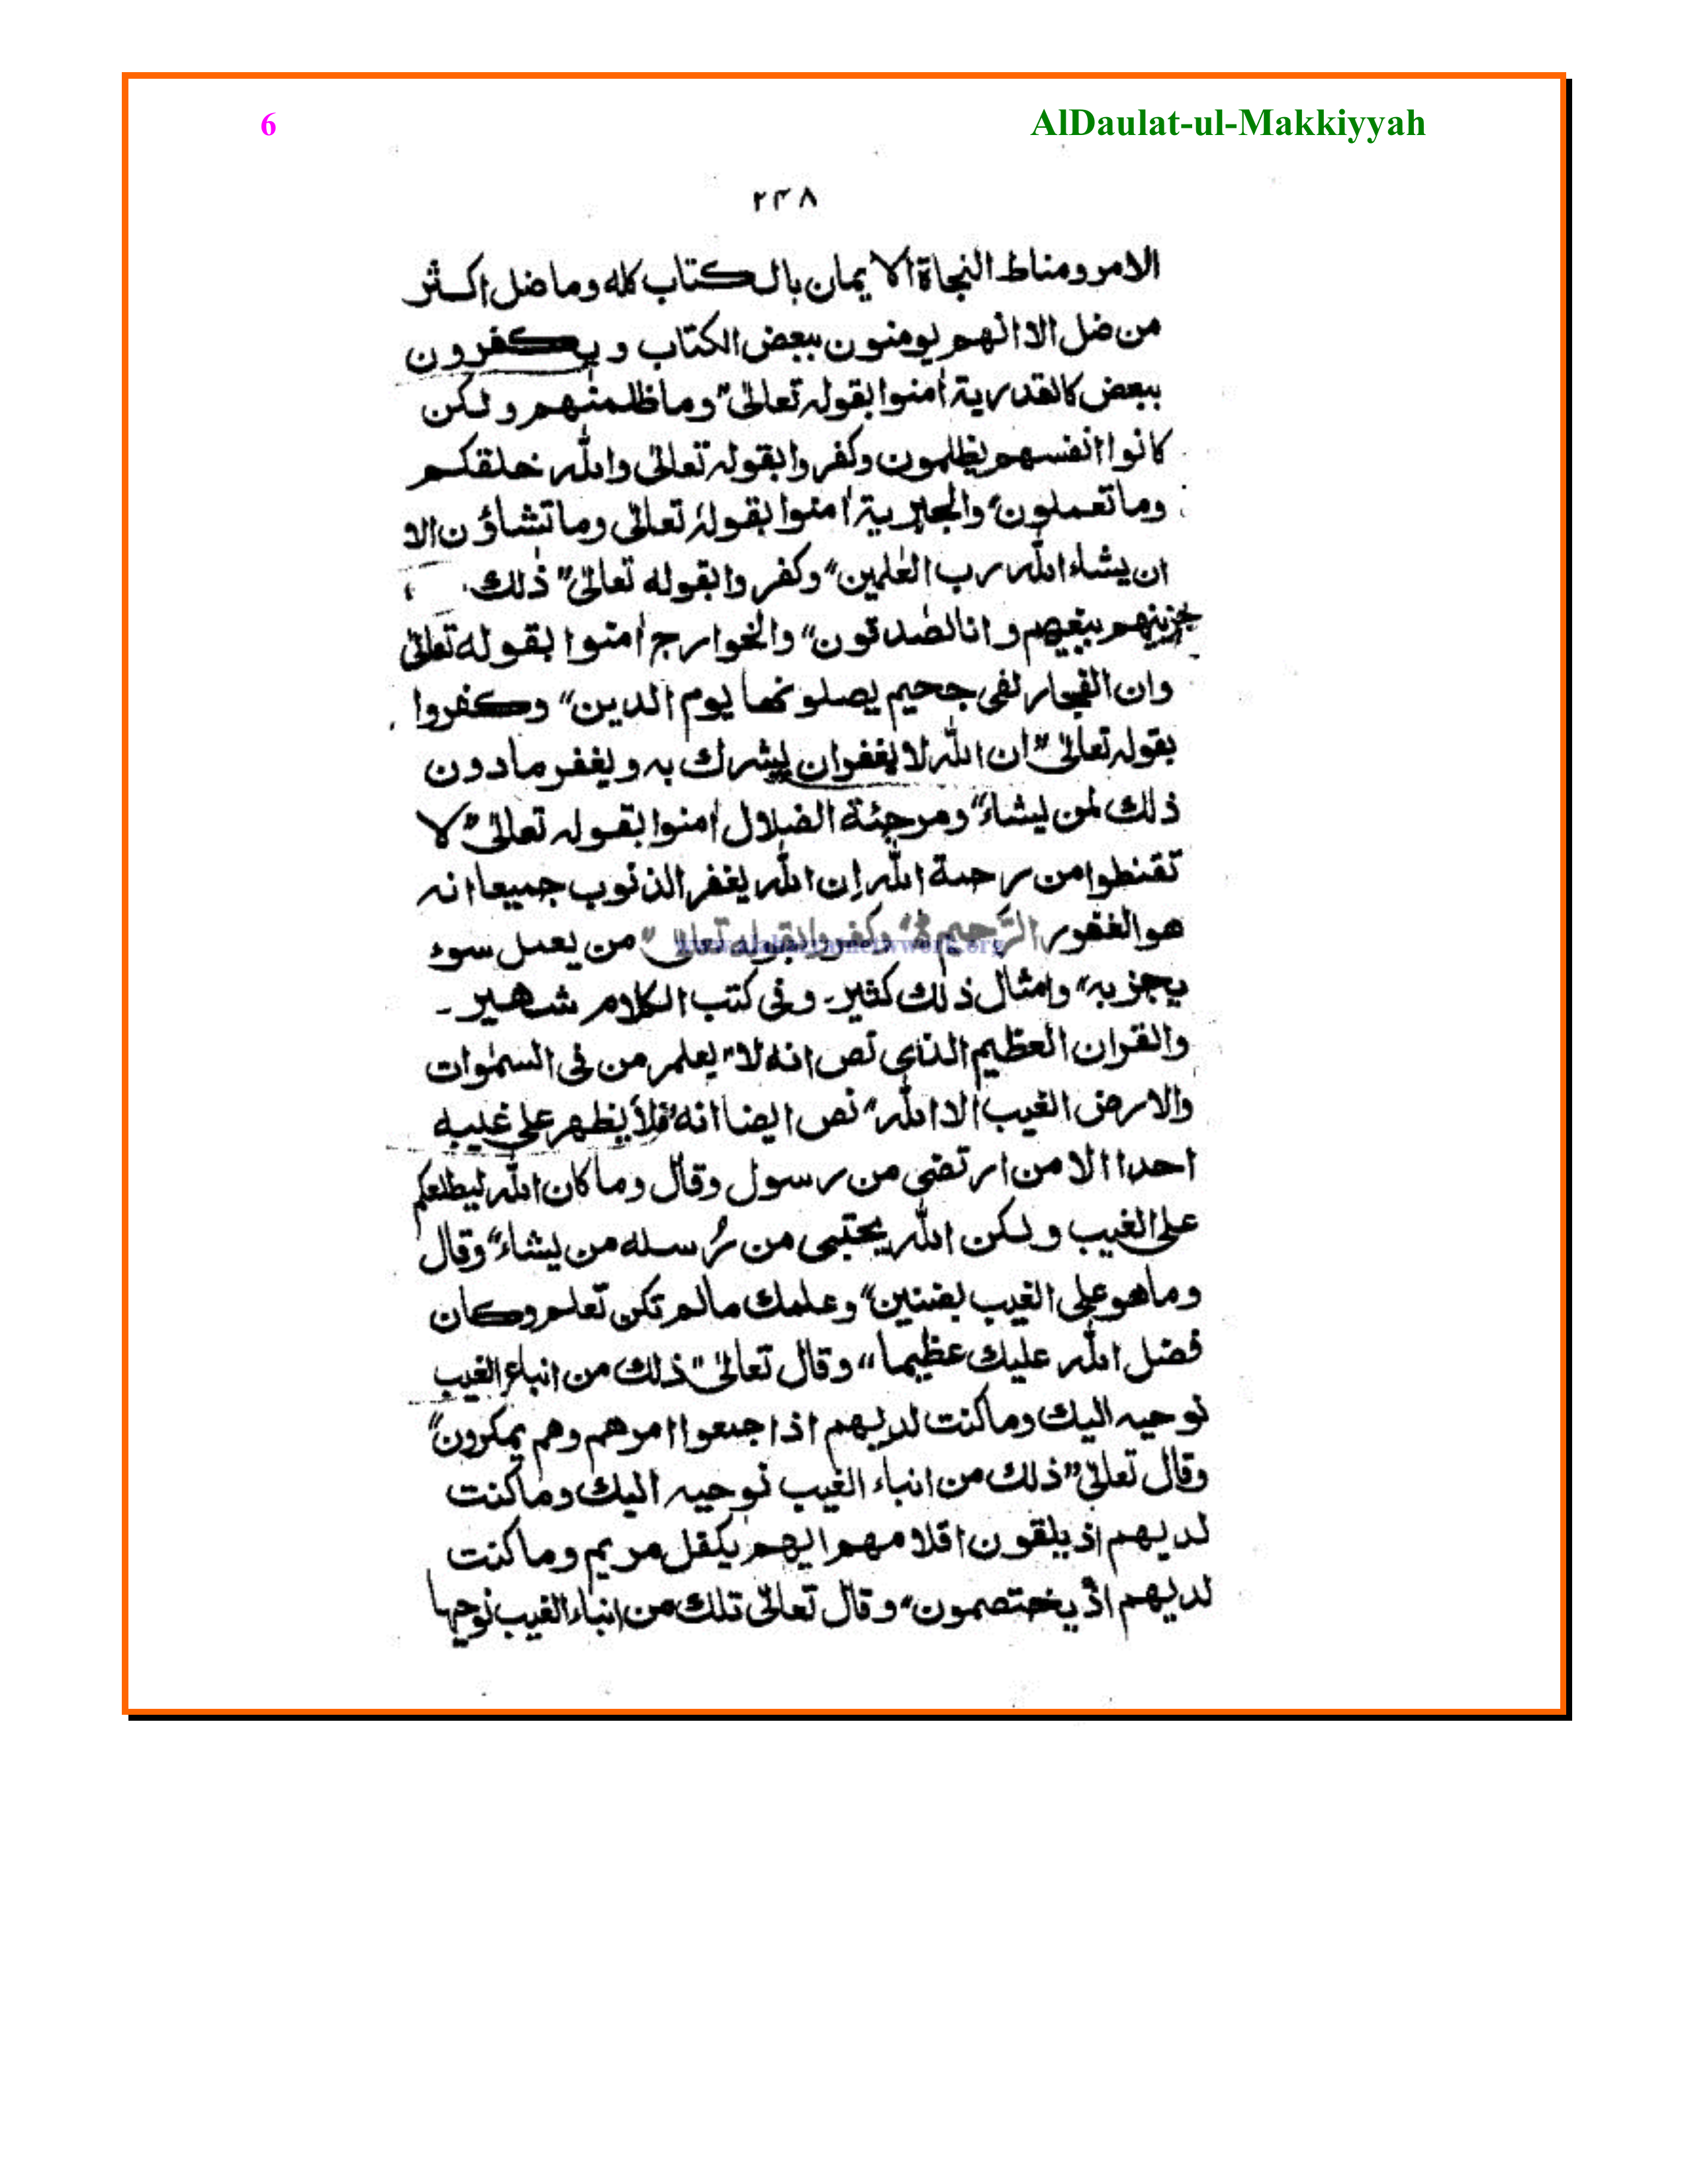 6 AlDaulat-ul-Makkiyyah
۲۴۸
الامر ومناط النجاة الایمان بالکتاب کله وما ضل اکثر
من ضل الا انهم یومنون ببعض الکتاب و یکفرون
ببعض کالقدریة اٰمنوا بقوله تعالیٰ "وما ظلمنٰهم ولکن
کانوا انفسهم یظلمون وکفروا بقوله تعالیٰ والله خلقکم
وما تعملون" والجبریة اٰمنوا بقوله تعالیٰ وما تشاؤن الا
ان یشاء الله رب العٰلمین" وکفروا بقوله تعالیٰ" ذٰلك
جزینٰهم ببغیهم وانا لصٰدقون" والخوارج اٰمنوا بقوله تعالیٰ
وان الفجار لفی جحیم یصلونها یوم الدین" وکفروا
بقوله تعالیٰ "ان الله لا یغفر ان یشرك به ویغفر مادون
ذلك لمن یشاء" ومرجئة الضلال اٰمنوا بقوله تعالیٰ" لا
تقنطوا من رحمة الله ان الله یغفر الذنوب جمیعا انه
هو الغفور الرّحیم" وکفروا بقوله تعالیٰ "من یعمل سوء
یجز به" وامثال ذلك کثیر۔ وفی کتب الکلام شهیر۔
والقراٰن العظیم الذی نص انه لا" یعلم من فی السمٰوات
والارض الغیب الا الله" نص ایضا انه "فلا یظهر علی غیبه
احدا الا من ارتضی من رسول وقال وما کان الله لیطلعکم
علی الغیب ولکن الله یجتبی من رُسله من یشاء" وقال
وما هو علی الغیب بضنین" وعلمك مالم تکن تعلم وکان
فضل الله علیك عظیما" وقال تعالیٰ" ذلك من انباء الغیب
نوحیه الیك وما کنت لدیهم اذا جمعوا امرهم وهم یمکرون"
وقال تعالیٰ" ذلك من انباء الغیب نوحیه الیك وما کنت
لدیهم اذ یلقون اقلامهم ایهم یکفل مریم وما کنت
لدیهم اذ یختصمون" وقال تعالیٰ تلك من انباء الغیب نوحیها